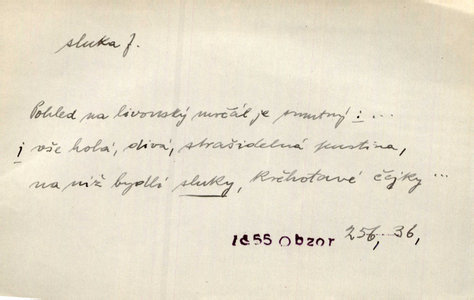 sluka f.
Pohled na livonský močál je smutný : ...
i vše holá, divá, strašidelná pustina,
na níž bydlí sluky, křehotavé čejky ...
1855 Obzor 256, 36,